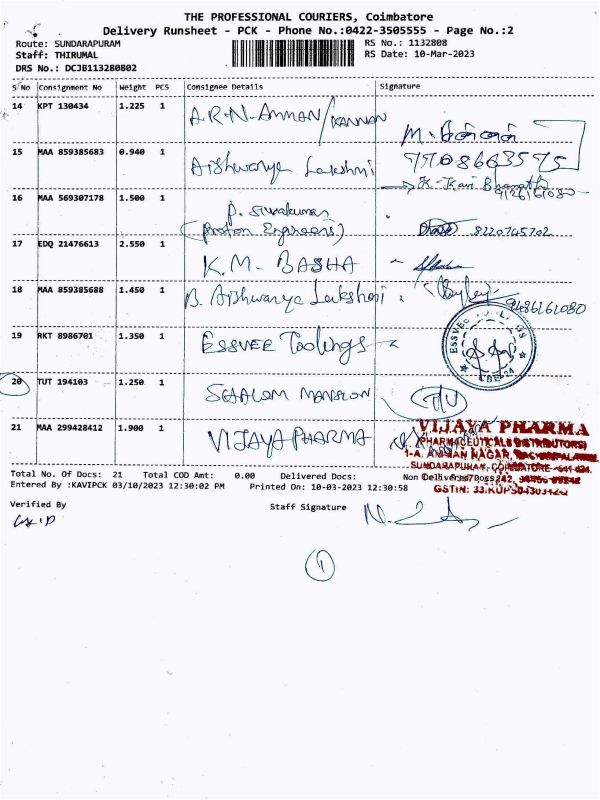 THE PROFESSIONAL COURIERS, Coimbatore
Delivery Runsheet - PCK - Phone No.:0422-3505555 - Page No.:2
Route: SUNDARAPURAM
RS No.: 1132808
Staff: THIRUMAL
RS Date: 10-Mar-2023
DRS No.: DCJB113280802
S No Consignment No Weight PCS Consignee Details Signature
14 KPT 130434 1.225 1 A.R.N-AMMAN/KANNAN
15 MAA 859385683 0.940 1 Aishwarya Lakshmi
9126161080
16 MAA 569307178 1.500 1 P. Sivakumar
(Proton Engineers) 8220745702
17 EDQ 21476613 2.550 1 K.M. BASHA
18 MAA 859385688 1.450 1 B. Aishwarya Lakshmi
9486161080
19 RKT 8986701 1.350 1 ESSVEE Toolings
20 TUT 194103 1.250 1 SHALOM MANSION
21 MAA 299428412 1.900 1 VIJAYA PHARMA
VIJAYA PHARMA
(PHARMACEUTICALS DISTRIBUTORS)
Total No. Of Docs: 21 Total COD Amt: 0.00 Delivered Docs: Non Delivered Docs:
Entered By :KAVIPCK 03/10/2023 12:30:02 PM Printed On: 10-03-2023 12:30:58
Verified By
Staff Signature
1